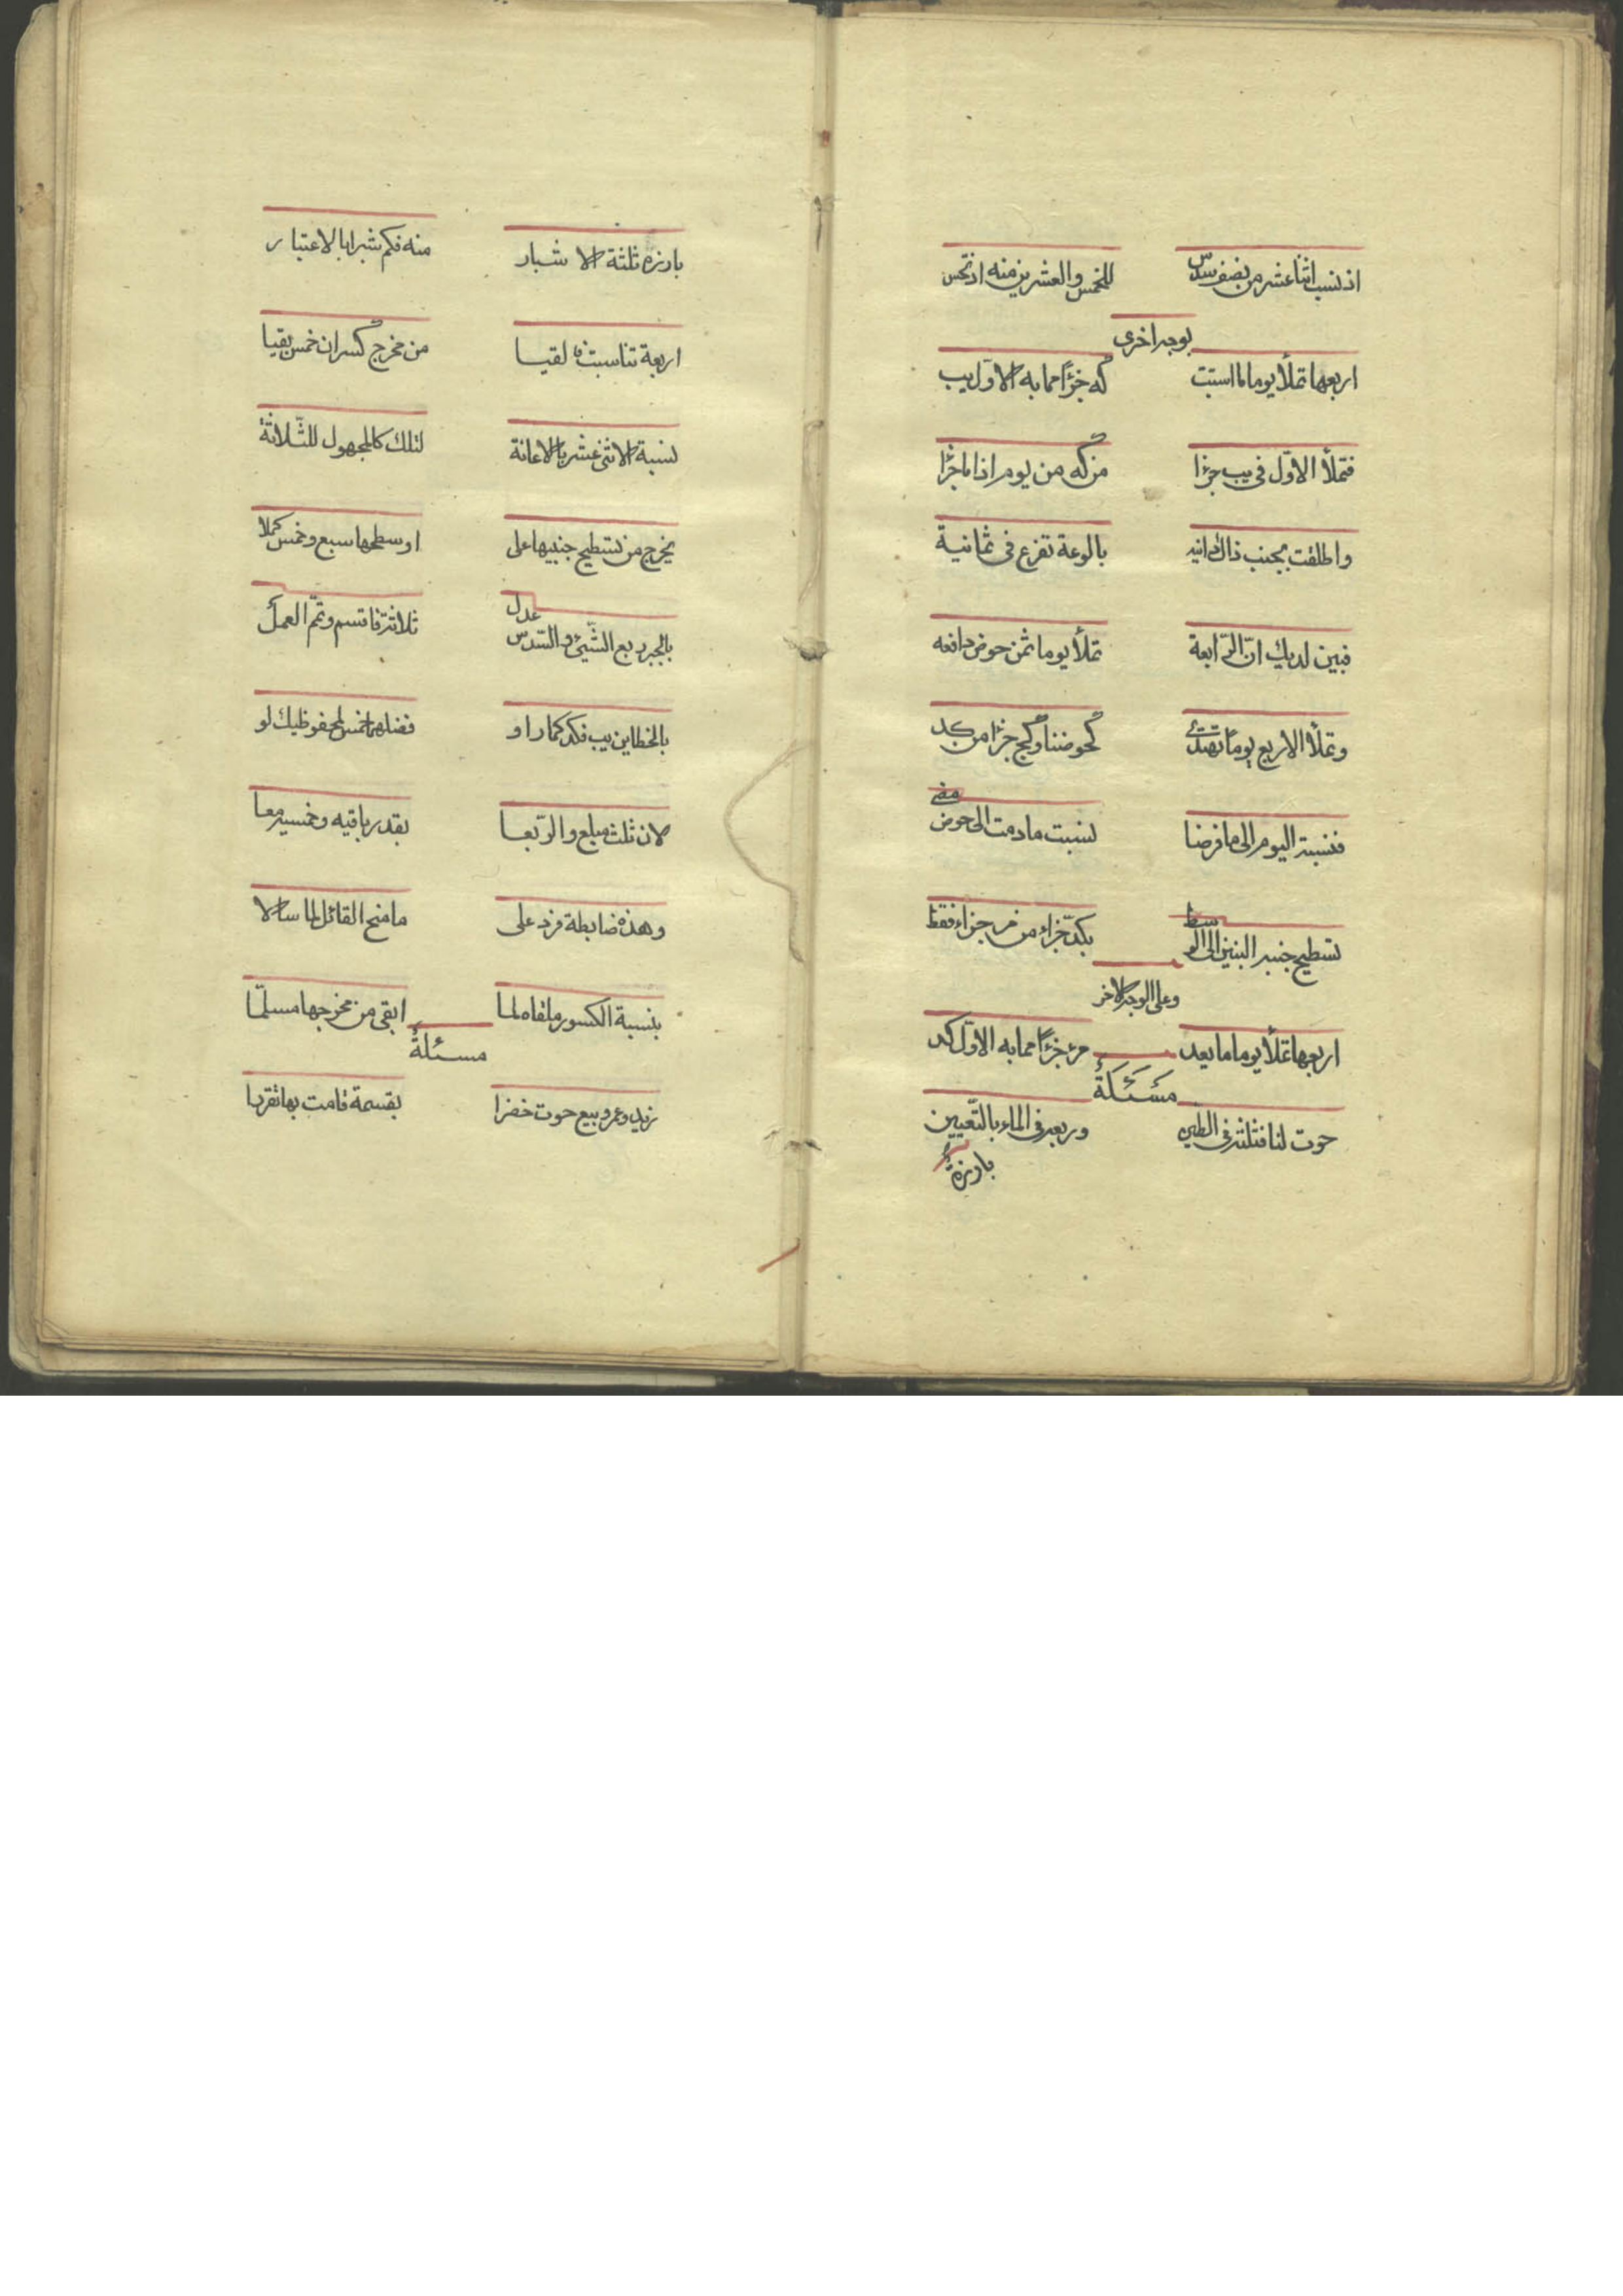 اذ نسب اثنا عشر من نصف سدس للخمس والعشرين منه اذ تحس
بوجه اخرى
اربعها تملأ يوما لما استبت كه جزءًا مما به الاوّل يب
فتملأ الاوّل فى يب جزءا من كه من يوم اذا ما جزّا
واطلقت بجنب ذاك دانيه بالوعة تفزع فى ثمانية
فبين لديك انّ الرّابعة تملأ يوما ثمن حوض دافعه
وتملأ الاربع يومًا تهتدى كحوضنا وكج جزءا من كد
فنسبة اليوم الى ما فرضا لنسبت ما دمت الى حوض مضى
تسطيح جنبه البنين الى الوسط بكد جزاء من مر جزاء فقط
وعلى الوجه الاخر
اربعها تملأ يوما ما يعد مز جزءًا مما به الاوّل كد
مسئلة
حوت لنا فثلثه فى الطين وربعه فى الماء بالتّعيين
بارزة
بارزه ثلثة الاشبار منه فكم شبرا بالاعتبار
اربعة تناسبت فالقيا من مخرج كسران خمس بقيا
لنسبة الاثنى عشر بالاعانة لتلك كالمجهول للثّلاثة
يخرج من تسطيح جنبيها على اوسطها سبع وخمس كملا
بالجبر ربع الشّيئ والسّدس عدل ثلاثة فاقسم وتمّ العمل
بالخطاين يب فكد كما راو فضلهما خمس لمحفوظيك لو
لان ثلث مبلع والرّبعا بقدر باقيه وخمسيه معا
وهذه ضابطة فزد على ما منح القائل لما سالا
بنسبة الكسور ملقاه لما ابقى من مخرجها مسلّما
مسئلة
زيد وعمرو بيع حوت حضرا بقسمة قامت بها تقررا